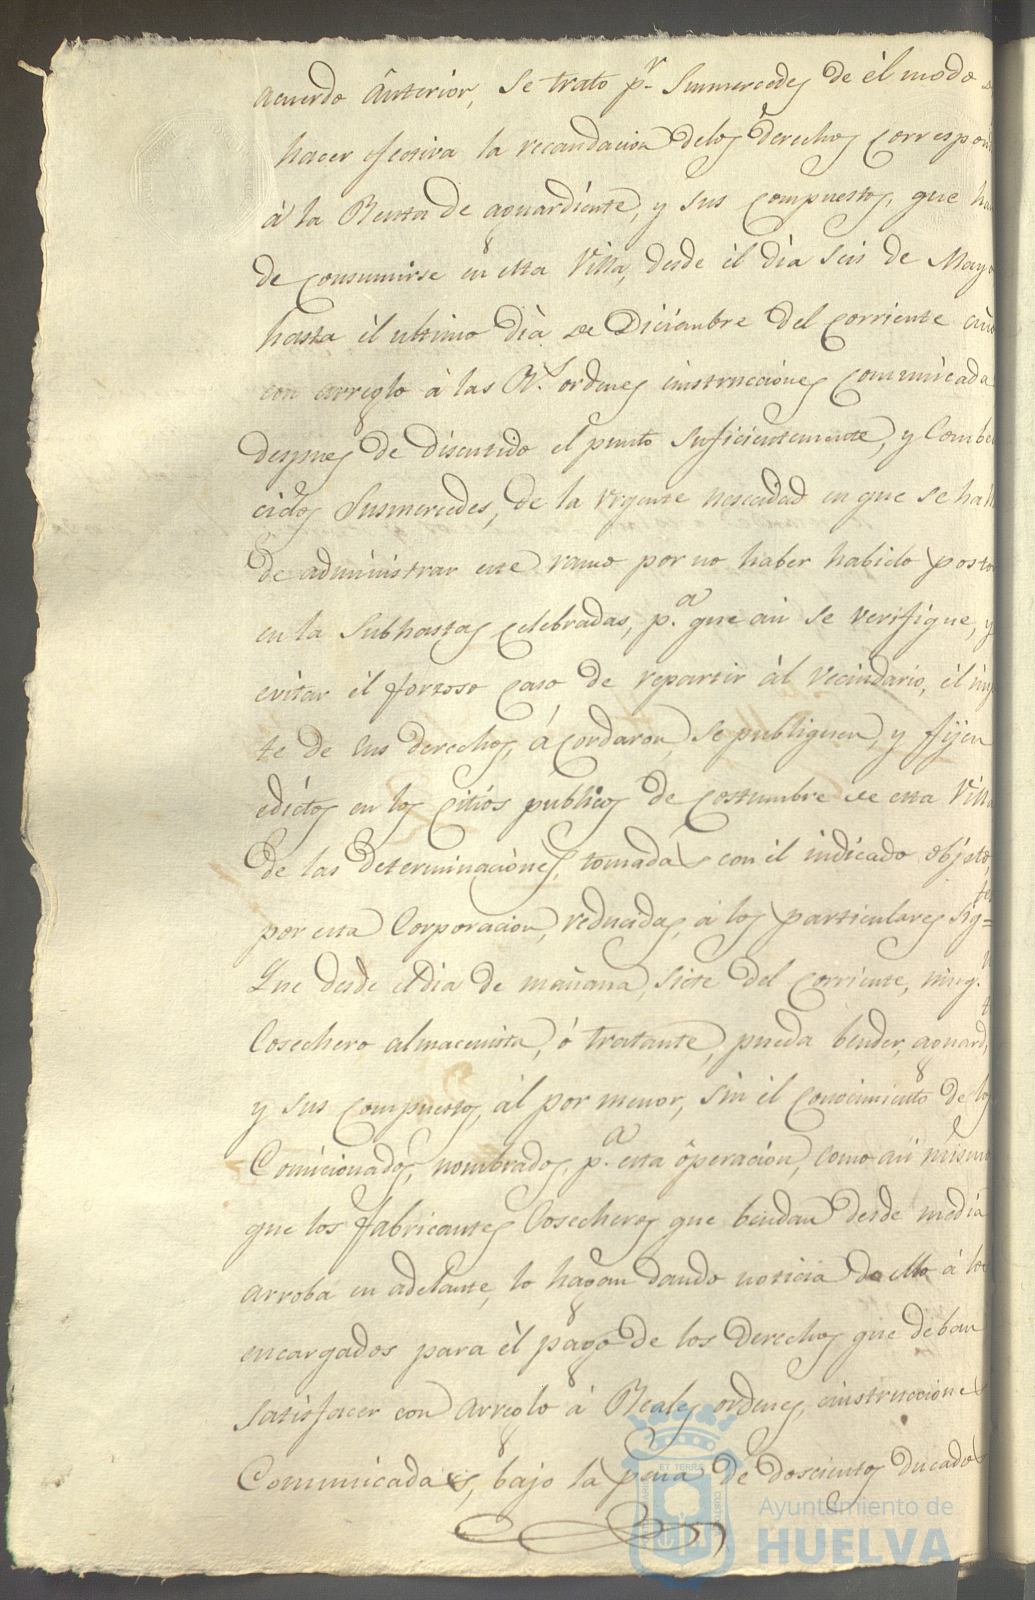 acuerdo ânterior, se trato pr. Susmercedes de él modo de
hacer efectiva la recaudacion delos derechos correspon
à la Renta de aguardiente, y sus compuestos, que ha
de consumirse en esta Villa, desde él dia seis de Mayo
hasta él ultimo dia de Diciembre del corriente año
con arreglo à las Rs. ordenes einstrucciones comunicada
despues de discutido el punto suficientemente, y Combe
cidos Susmercedes, de la urgente nescecidad en que se hall
de administrar este ramo por no haber habido posto
en la Subhastas celebradas, pa. que asi se verifique, y
evitar él forzoso caso de repartir àl Vecindario, él imp
te de sus derechos, ácordaron, se publiquen, y fijen
edictos en los citios publicos de costumbre de esta Villa
de las determinaciones, tomadas con él indicado objeto,
por esta Corporacion, reducidas, à los particulares sigtes=
Que desde el dia de mañana, siete del corriente, ningn.
Cosechero almacenista, ó tratante, pueda bender, aguardte
y sus compuestos, àl por menor, sin él conocimiento de los
Comicionados, nombrados, pa. esta óperacion, como asi mismo
que los fabricantes Cosecheros que bendan desde media
arroba en adelante, lo hagan dando noticia de ello á los
encargados para él pago de los derechos que deban
satisfacer con arreglo à Reales ordenes, einstrucciones
Comunicadas, bajo la pena de doscientos ducados
Ayuntamiento de
HUELVA